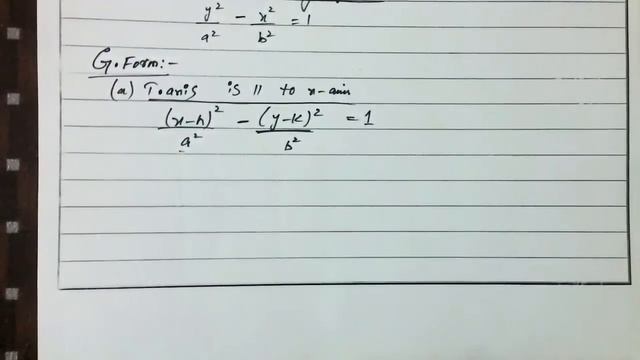 y²/a² - x²/b² = 1
G.Form:-
(a) T.axis is || to x-axis
(x-h)²/a² - (y-k)²/b² = 1